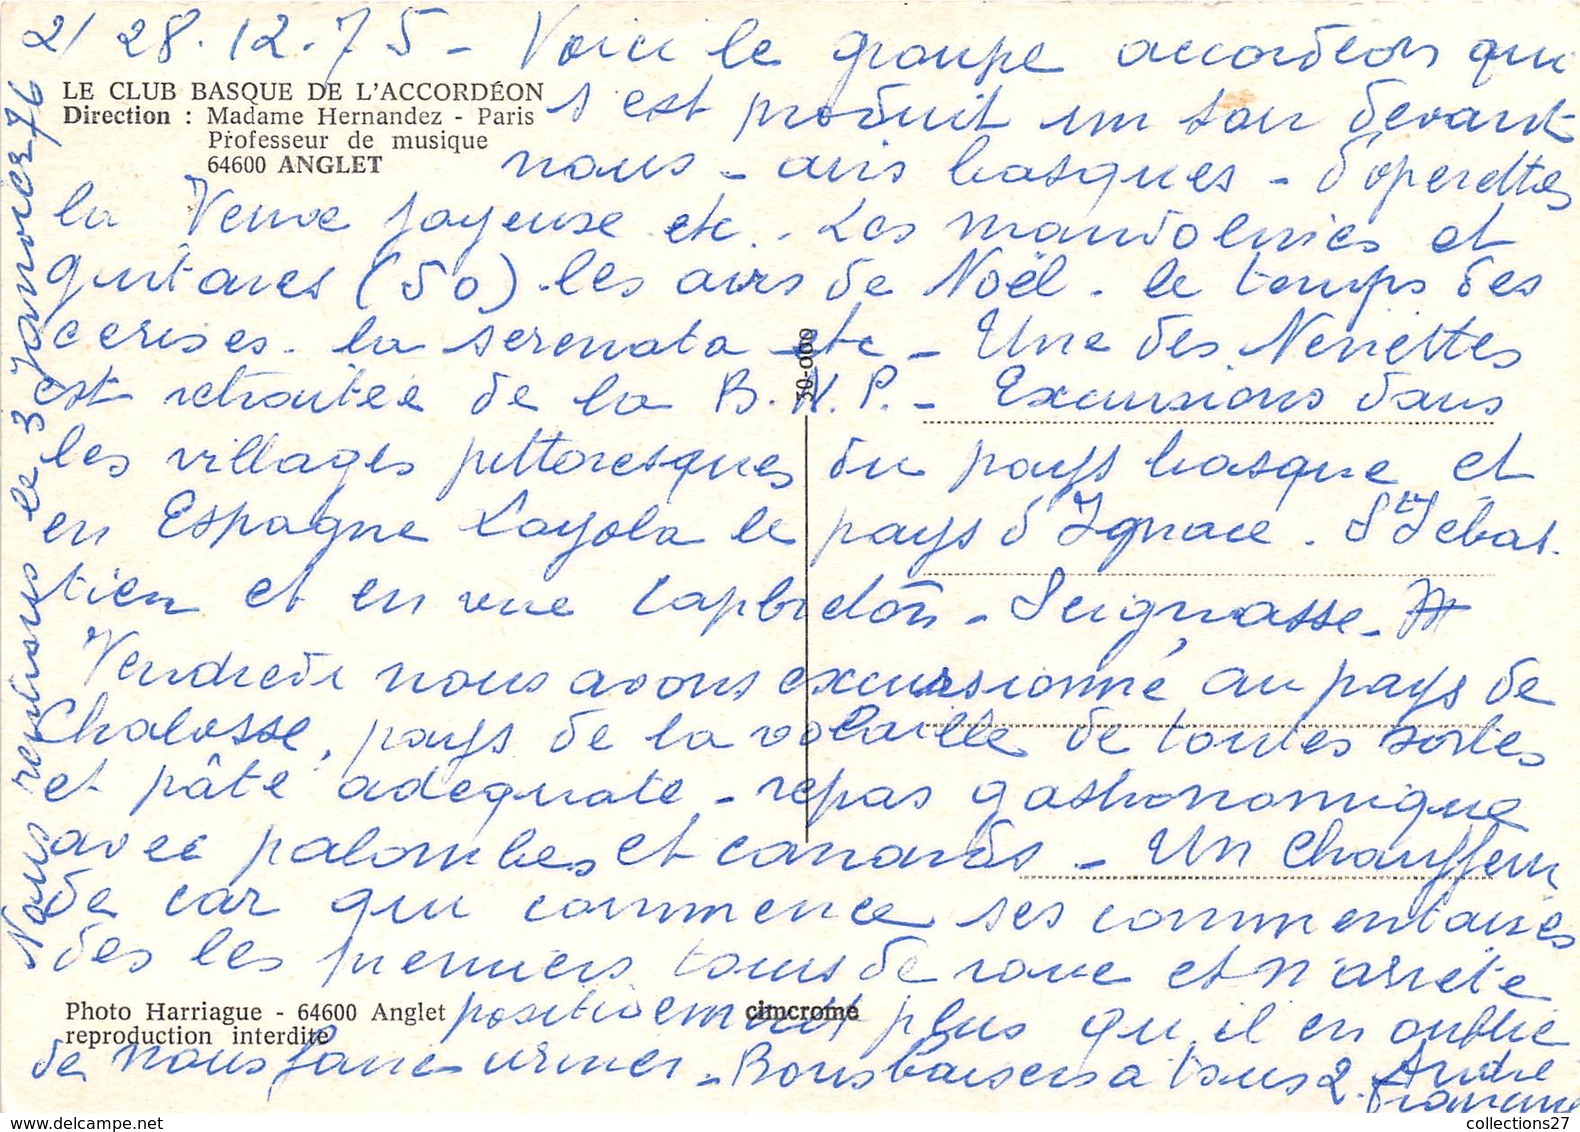 2/ 28.12.75 - Voici le groupe accordéon qui
LE CLUB BASQUE DE L'ACCORDÉON
Direction : Madame Hernandez - Paris
Professeur de musique
64600 ANGLET
s'est produit un soir devant
nous - airs basques - d'operettes
la Veuve joyeuse etc.. Les mandolines et
guitares (50). les airs de Noël. le temps des
cerises. la serenata etc - Une des Nenettes
est retraitée de la B.N.P. - Excursions dans
les villages pittoresques du pays basque et
en Espagne Loyola le pays d'Ignace. St Sebas.
tien et en vue Capbreton - Seignasse -
Vendredi nous avons excursionné au pays de
Chalosse, pays de la volaille de toutes sortes
et pâté adequate - repas gastronomique
avec palombes et canards - Un chauffeur
de car qui commence ses commentaires
des les premiers tours de roue et n'arrête
Photo Harriague - 64600 Anglet
reproduction interdite
cimcrome
30-000
positivement plus qu'il en oublie
de nous faire uriner - Bons baisers a tous 2. André
Nous rentrons le 3 Janvier 76
collections27